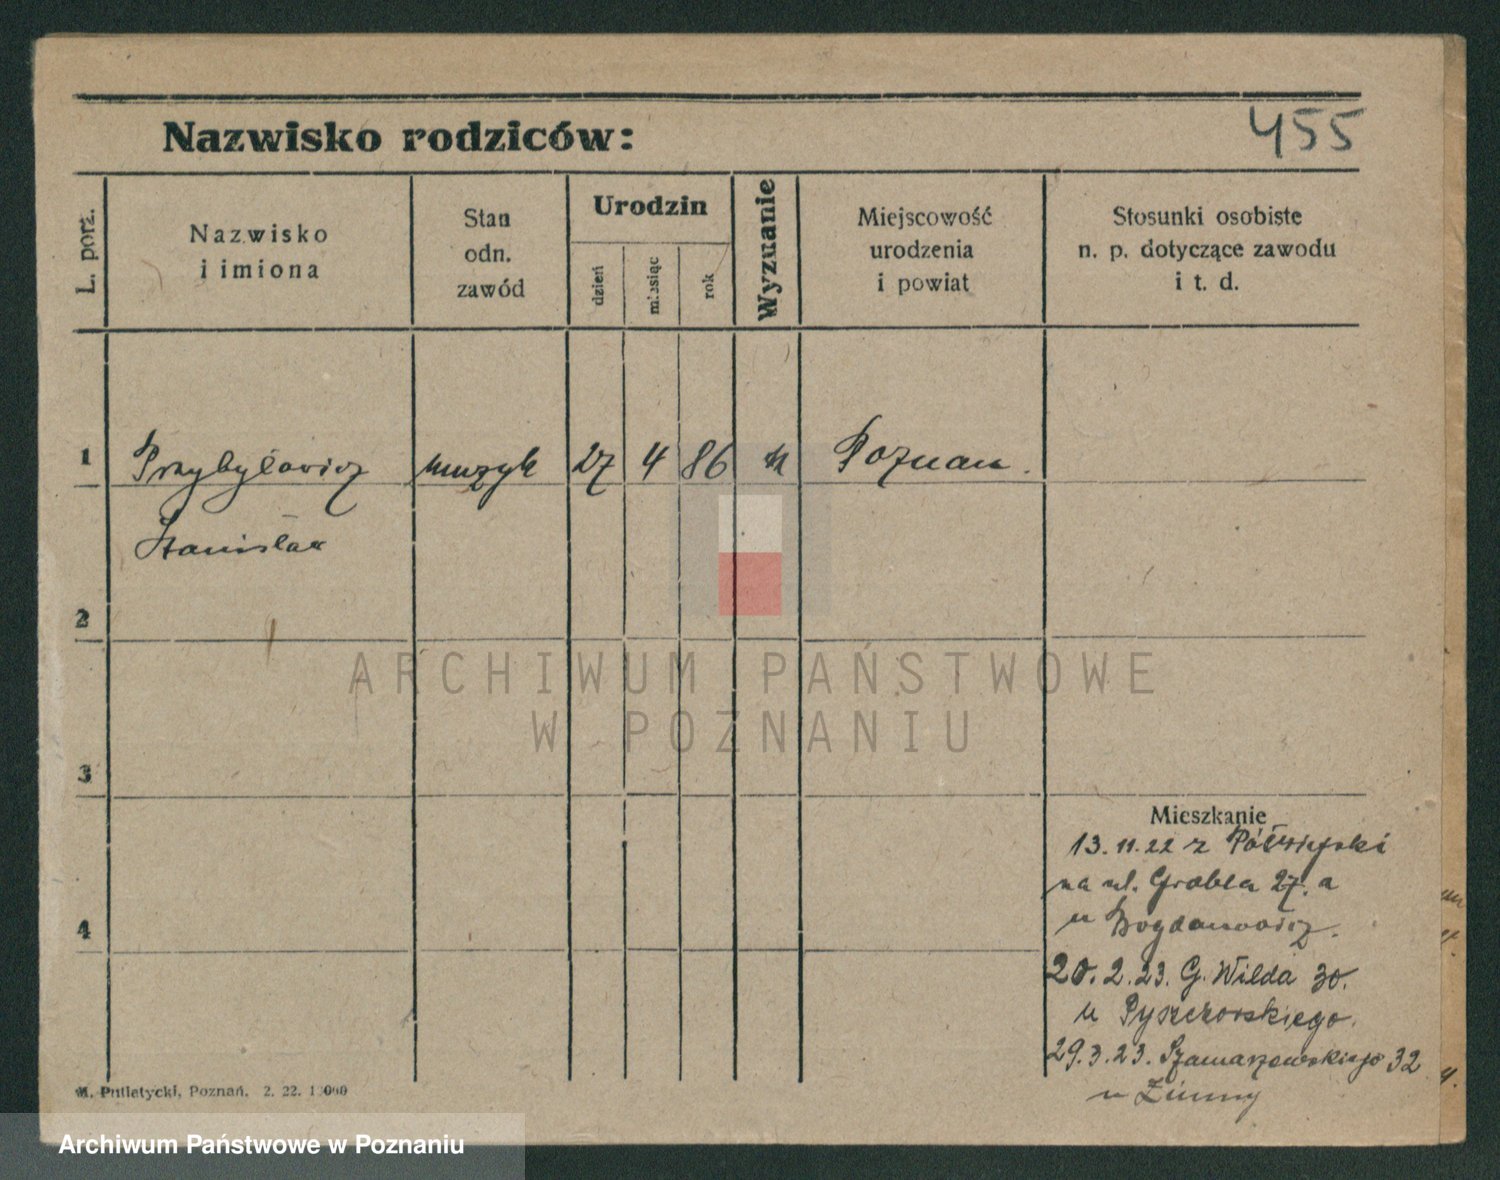 455
Nazwisko rodziców:
L. porz.
Nazwisko
i imiona
Stan
odn.
zawód
Urodzin
dzień
miesiąc
rok
Wyznanie
Miejscowość
urodzenia
i powiat
Stosunki osobiste
n. p. dotyczące zawodu
i t. d.
1 Przybyłowicz muzyk 27 4 86 Poznań.
Stanisław
2
3
4
Mieszkanie
13.11.22 z Półwiejski
na ul. Grobla 27.a
u Bogdanowicz.
20.2.23. G. Wilda 30.
u Pyszczorskiego.
29.3.23. Szamarzewskiego 32
u Zimny
M. Putiatycki, Poznań. 2. 22.
ARCHIWUM PAŃSTWOWE
W POZNANIU
Archiwum Państwowe w Poznaniu